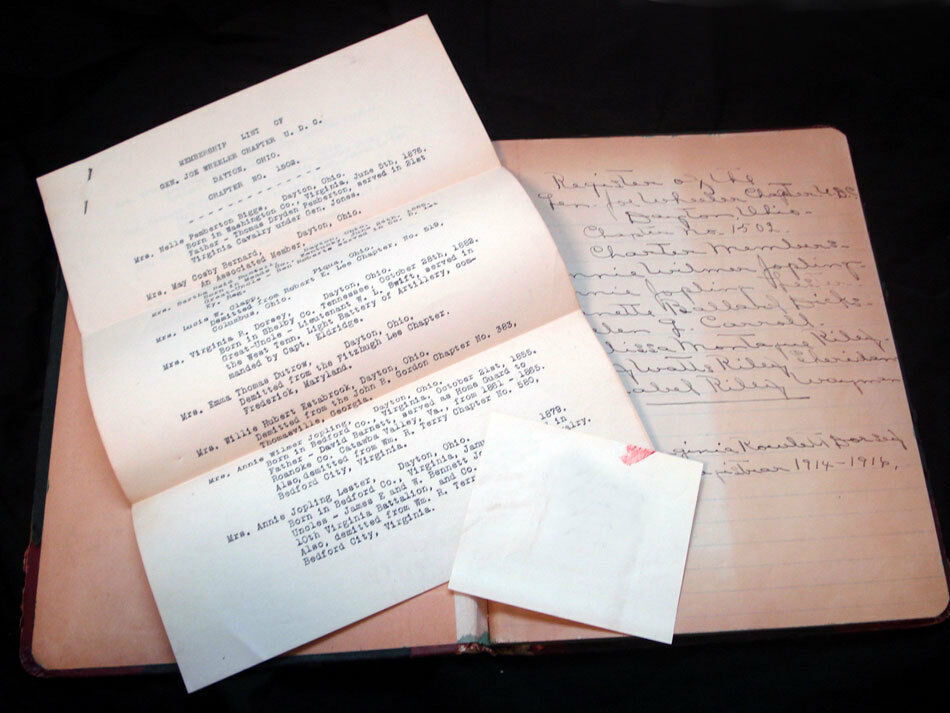 MEMBERSHIP LIST OF
GEN. JOE WHEELER CHAPTER U. D. C.
DAYTON, OHIO.
CHAPTER NO. 1502.
- - - - - - - - - - - - - - -
Mrs. Nelle Pemberton Biggs, Dayton, Ohio.
Born in Washington Co., Virginia, June 5th, 1875.
Father - Thomas Dryden Pemberton, served in 21st
Virginia Cavalry under Gen. Jones.
Mrs. May Cosby Bernard, Dayton, Ohio.
An Associated Member.
Mrs. Lucie W. Clapp, Piqua, Ohio.
Demitted from Robert E. Lee Chapter, No. 519,
Columbus, Ohio.
Mrs. Virginia R. Dorsey, Dayton, Ohio.
Born in Shelby Co., Tennessee, October 28th, 1882.
Great-Uncle - Lieutenant W. L. Swift, served in
the West Tenn. Light Battery of Artillery, com-
manded by Capt. Eldridge.
Mrs. Emma Thomas Dutrow, Dayton, Ohio.
Demitted from the Fitzhugh Lee Chapter.
Frederick, Maryland.
Mrs. Willie Hubert Estabrook, Dayton, Ohio.
Demitted from the John B. Gordon Chapter No. 383,
Thomasville, Georgia.
Mrs. Annie Wilmer Jopling, Dayton, Ohio.
Born in Bedford Co., Virginia, October 21st, 1855.
Father - David Barnett, served as Home Guard to
Roanoke Co. Catawba Valley, Va., from 1861 - 1865.
Also, demitted from Wm. R. Terry Chapter No. 580,
Bedford City, Virginia.
Mrs. Annie Jopling Lester, Dayton, Ohio.
Born in Bedford Co., Virginia, 1879.
Uncles - James E and W. Bennett in
10th Virginia Battalion, and Co.
Also, demitted from Wm. R. Terry
Bedford City, Virginia.
Register of the
Gen. Joe Wheeler Chapter U.D.C.
Dayton Ohio.
Chapter No 1502.
Charter Members.
Wilmer Jopling
Jopling
Carroll
Montague Riley
Watts Riley
Riley
1914-1916.